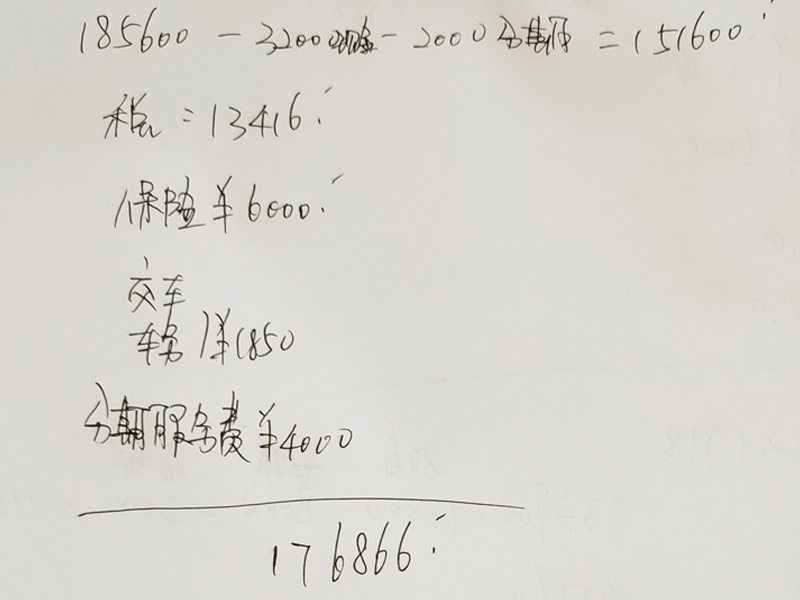 185600 - 32000 - 2000分期 = 151600
税 = 13416
保险 ¥6000
交车
车务 ¥1850
分期服务费 ¥4000
176866